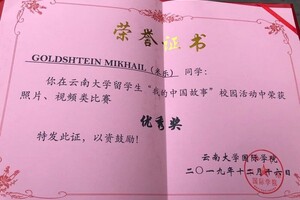 荣誉证书
GOLDSHTEIN MIKHAIL（米乐）同学：
你在云南大学留学生“我的中国故事”校园活动中荣获
照片、视频类比赛
优秀奖
特发此证，以资鼓励！
云南大学国际学院
二〇一九年十二月十六日
国际学院